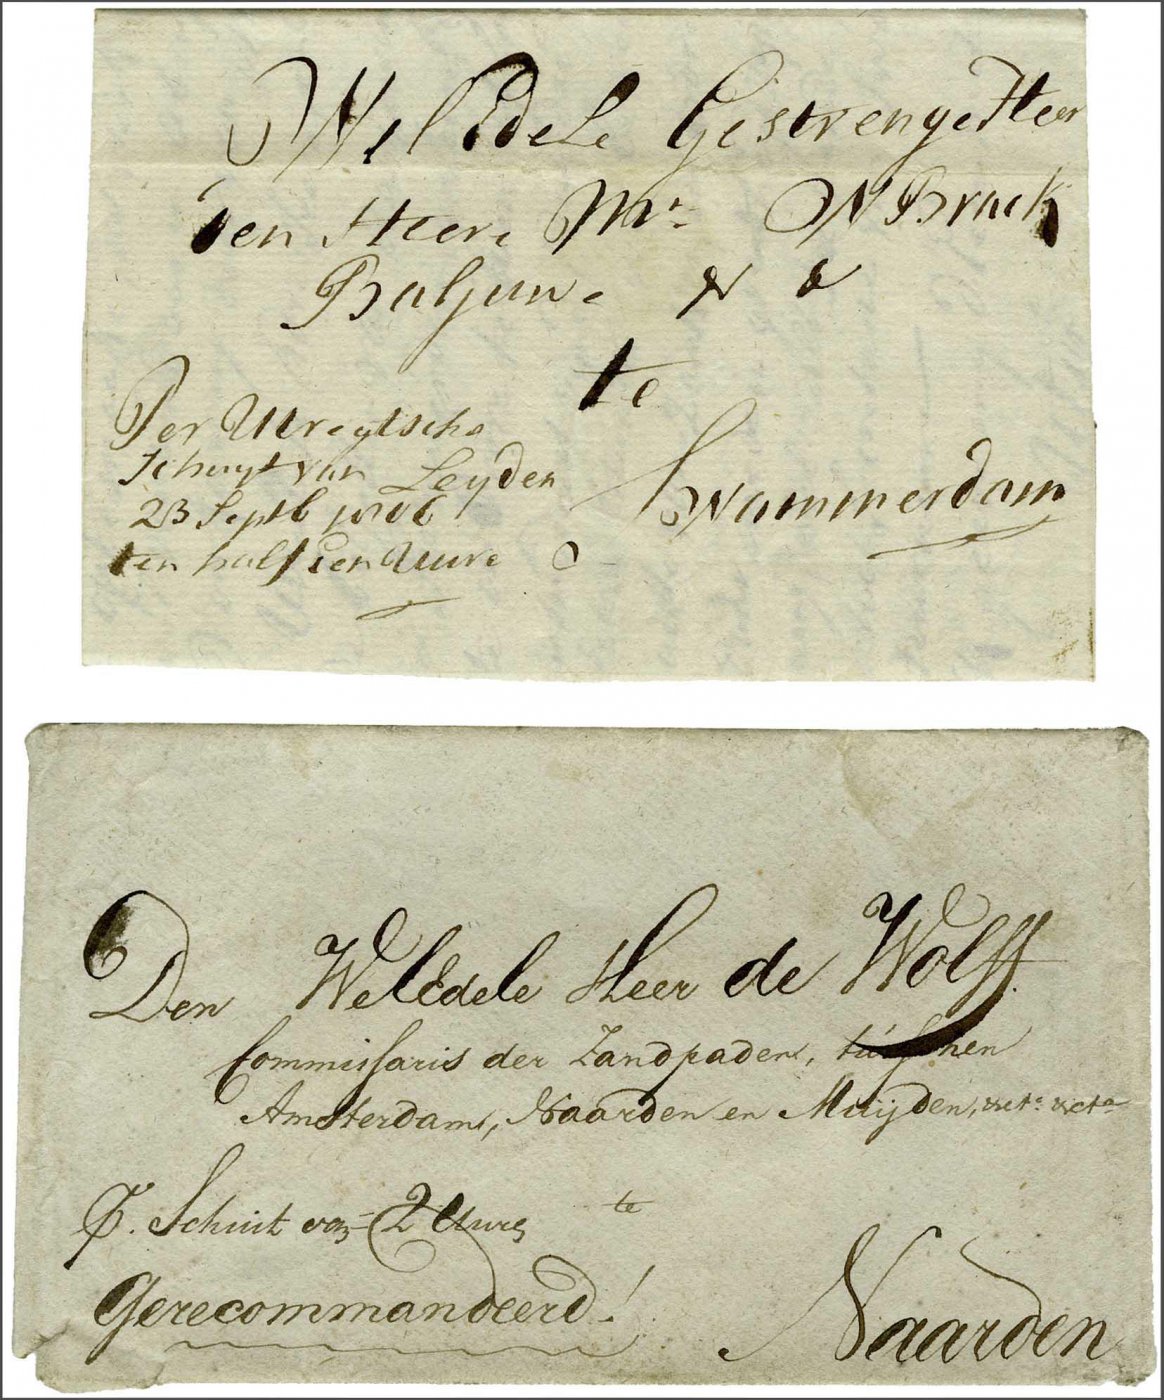 WelEdele Gestrenge Heer
den Heere Mr. N Brack
Baljuw. & &
te
Swammerdam
Per Utregtsche
Schuyt van Leyden
23 Septb 1806
ten half tien Uure
Den WelEdele Heer de Wolff.
Commissaris der Zandpaden, tusschen
Amsterdam, Naarden en Muijden, &cta &cta
te
P. Schuit van 2 Uure
Gerecommandeerd!
Naarden